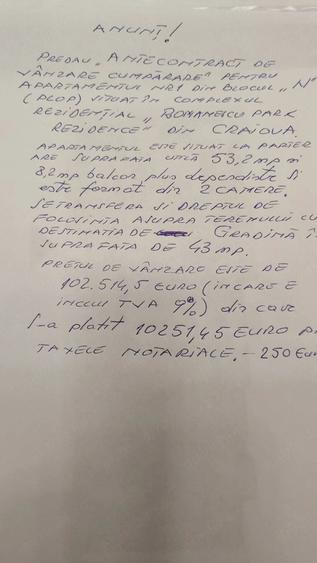 ANUNȚ!
PREDAU „ANTECONTRACT DE
VÂNZARE CUMPĂRARE" PENTRU
APARTAMENTUL NR1 DIN BLOCUL „N"
(PLOP) SITUAT ÎN COMPLEXUL
REZIDENȚIAL „ROMANESCU PARK
REZIDENCE" DIN CRAIOVA.
APARTAMENTUL ESTE SITUAT LA PARTER
ARE SUPRAFAȚA UTILĂ 53,2 mp și
8,2 mp balcon plus dependințe și
este format din 2 CAMERE.
SE TRANSFERA SI DREPTUL DE
FOLOSINȚĂ ASUPRA TERENULUI CU
DESTINAȚIA DE GRADINĂ Î
SUPRAFAȚĂ DE 43 mp.
PREȚUL DE VÂNZARE ESTE DE
102.514,5 EURO (ÎN CARE E
INCLUS TVA 9%) din care
S-a platit 10251,45 EURO
TAXELE NOTARIALE. - 250 Eu